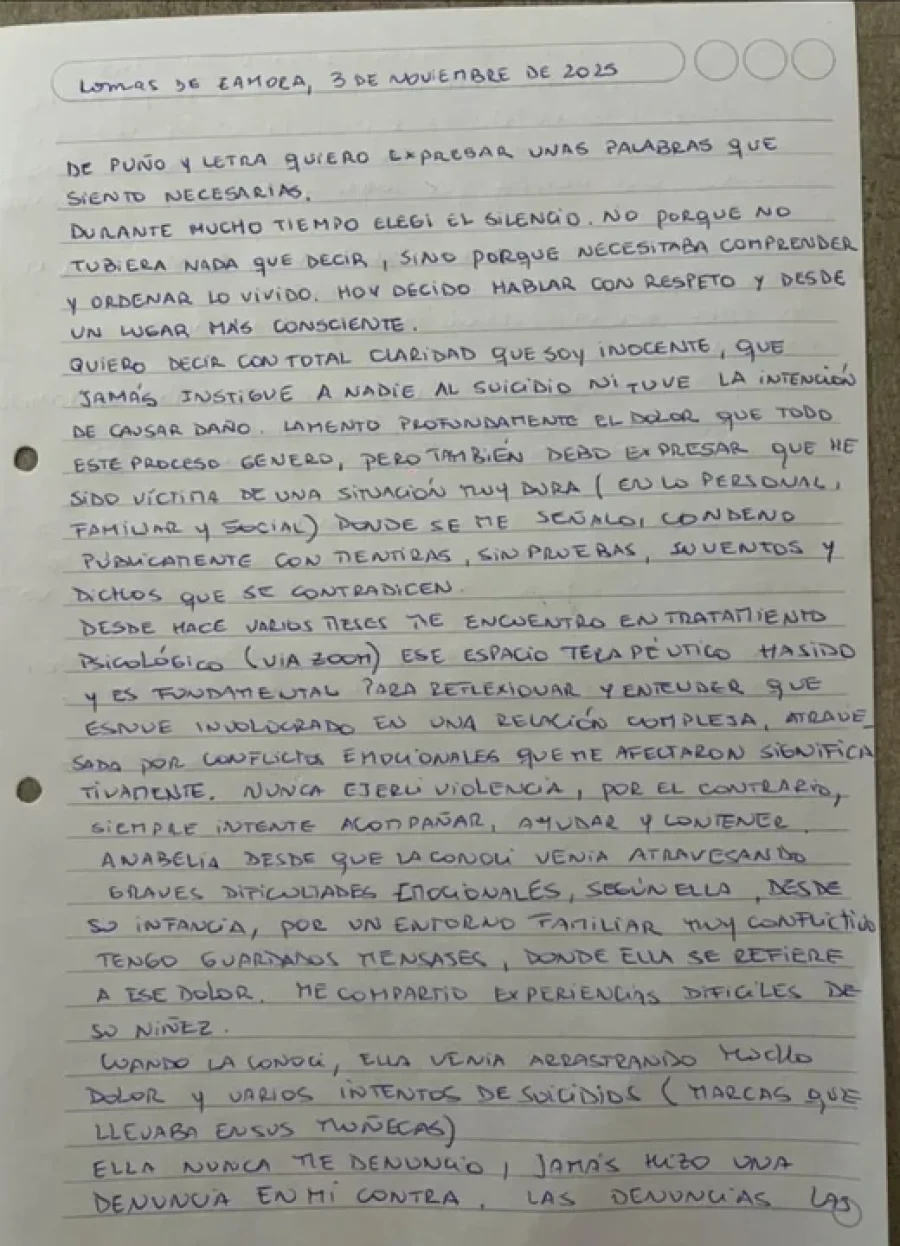 LOMAS DE ZAMORA, 3 DE NOVIEMBRE DE 2025
DE PUÑO Y LETRA QUIERO EXPRESAR UNAS PALABRAS QUE
SIENTO NECESARIAS.
DURANTE MUCHO TIEMPO ELEGI EL SILENCIO. NO PORQUE NO
TUBIERA NADA QUE DECIR, SINO PORQUE NECESITABA COMPRENDER
Y ORDENAR LO VIVIDO. HOY DECIDO HABLAR CON RESPETO Y DESDE
UN LUGAR MÁS CONSCIENTE.
QUIERO DECIR CON TOTAL CLARIDAD QUE SOY INOCENTE, QUE
JAMÁS INSTIGUE A NADIE AL SUICIDIO NI TUVE LA INTENCIÓN
DE CAUSAR DAÑO. LAMENTO PROFUNDAMENTE EL DOLOR QUE TODO
ESTE PROCESO GENERO, PERO TAMBIÉN DEBO EXPRESAR QUE HE
SIDO VÍCTIMA DE UNA SITUACIÓN MUY DURA (EN LO PERSONAL,
FAMILIAR Y SOCIAL) DONDE SE ME SEÑALO, CONDENO
PÚBLICAMENTE CON MENTIRAS, SIN PRUEBAS, INVENTOS Y
DICHOS QUE SE CONTRADICEN.
DESDE HACE VARIOS MESES ME ENCUENTRO EN TRATAMIENTO
PSICOLÓGICO (VIA ZOOM) ESE ESPACIO TERAPÉUTICO HA SIDO
Y ES FUNDAMENTAL PARA REFLEXIONAR Y ENTENDER QUE
ESTUVE INVOLOCRADO EN UNA RELACIÓN COMPLEJA, ATRAVE_
SADA POR CONFLICTOS EMOCIONALES QUE ME AFECTARON SIGNIFICA
TIVAMENTE. NUNCA EJERCI VIOLENCIA, POR EL CONTRARIO,
SIEMPRE INTENTE ACOMPAÑAR, AYUDAR Y CONTENER.
ANABELIA DESDE QUE LA CONOCÍ VENIA ATRAVESANDO
GRAVES DIFICULTADES EMOCIONALES, SEGÚN ELLA, DESDE
SU INFANCIA, POR UN ENTORNO FAMILIAR MUY CONFLICTIVO
TENGO GUARDADOS MENSAJES, DONDE ELLA SE REFIERE
A ESE DOLOR. ME COMPARTIO EXPERIENCIAS DIFICILES DE
SU NIÑEZ.
CUANDO LA CONOCÍ, ELLA VENIA ARRASTRANDO MUCHO
DOLOR Y VARIOS INTENTOS DE SUICIDIOS (MARCAS QUE
LLEVABA EN SUS MUÑECAS)
ELLA NUNCA ME DENUNCIO, JAMÁS HIZO UNA
DENUNCIA EN MI CONTRA. LAS DENUNCIAS LAS